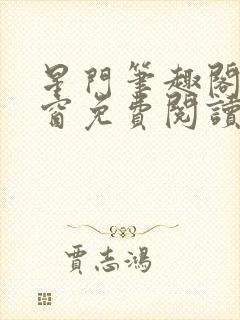 星門筆趣閣
窗免費閱讀
賈志鴻